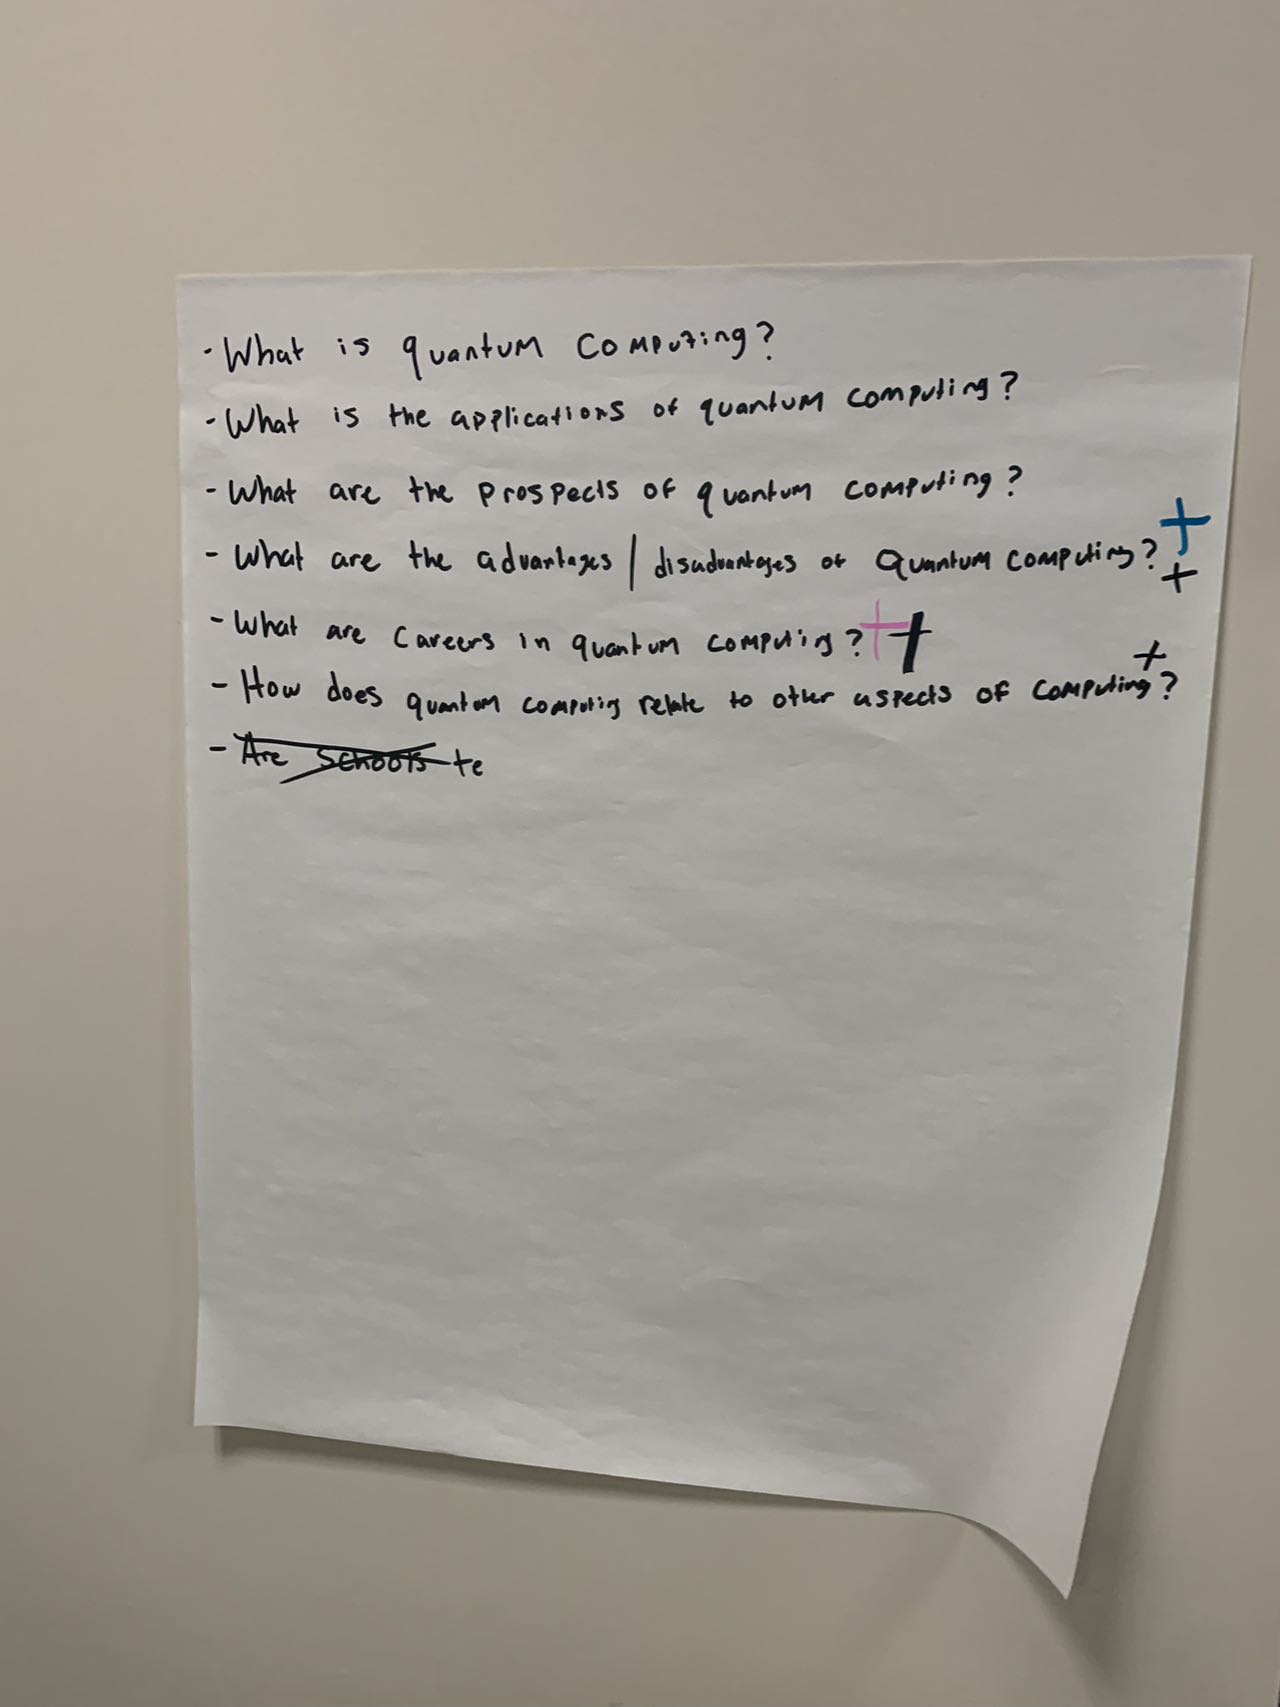 - What is quantum computing?
- What is the applications of quantum computing?
- What are the prospects of quantum computing?
- What are the advantages / disadvantages of Quantum computing? + +
- What are careers in quantum computing? + +
- How does quantum computing relate to other aspects of computing? +
- Are schools te